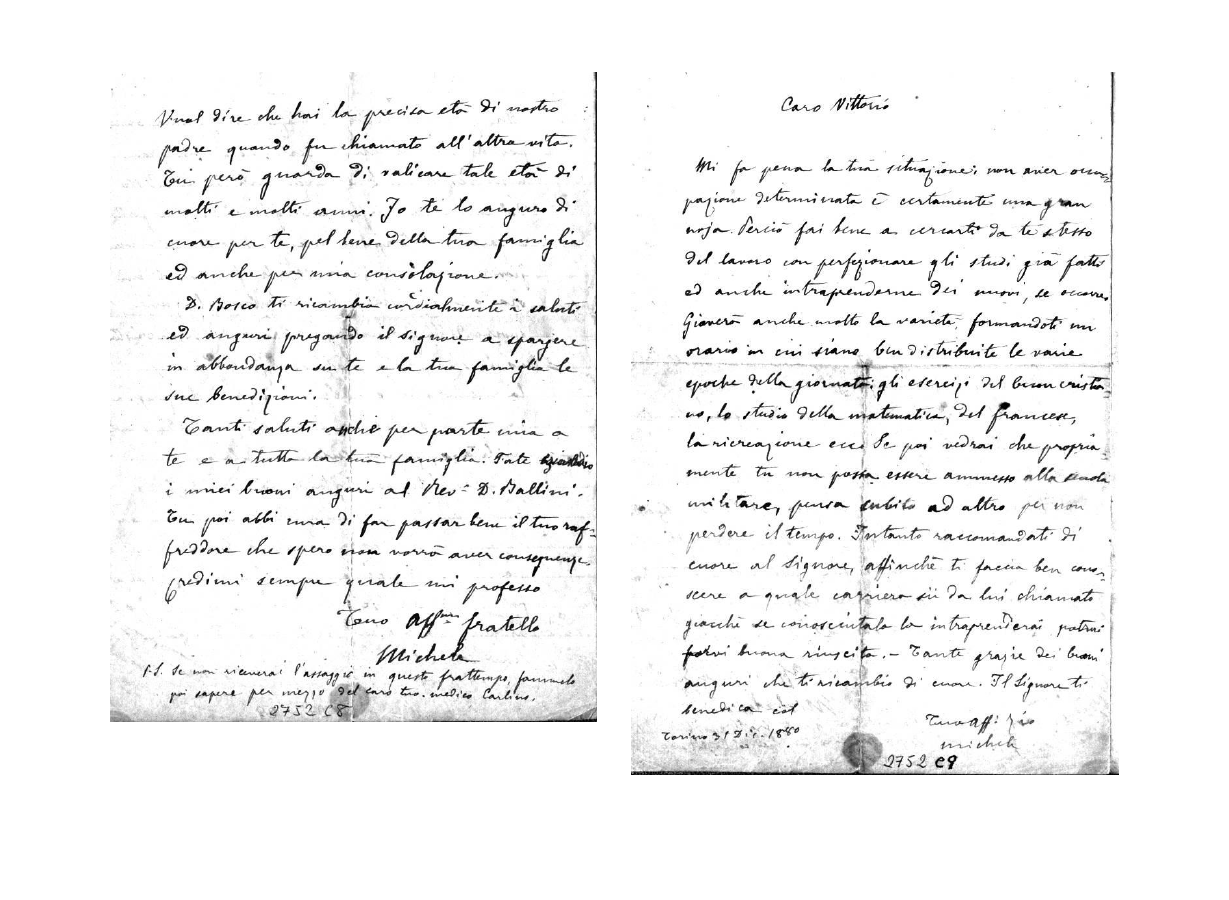 Vual dire che hai la precisa età di nostro
padre quando fu chiamato all'altra vita.
Tu però guarda di valicare tale età di
molti e molti anni. Io te lo auguro di
cuore per te, pel bene della tua famiglia
ed anche per mia consolazione.
D. Bosco ti ricambia cordialmente i saluti
ed auguri pregando il Signore a spargere
in abbondanza su te e la tua famiglia le
sue benedizioni.
Tanti saluti anche per parte mia a
te e a tutta la tua famiglia. Fate
i miei buoni auguri al Rev. D. Ballini.
Tu poi abbi cura di far passar bene il tuo raf-
freddore che spero non vorrà aver conseguenze.
Credimi sempre quale mi professo
Tuo Aff.mo fratello
Michele
P.S. Se non riceverai l'assaggio in questo frattempo, fammelo
poi sapere per mezzo del caro tuo medico Carlino.
2752 C8
Caro Vittorio
Mi fa pena la tua situazione: non aver occu-
pazione determinata è certamente una gran
noja. Perciò fai bene a cercarti da te stesso
del lavoro con perfezionare gli studi già fatti
ed anche intraprenderne dei nuovi, se occorre.
Gioverà anche molto la varietà, formandoti un
orario in cui siano ben distribuite le varie
epoche della giornata: gli esercizi del buon cristia-
no, lo studio della matematica, del francese,
la ricreazione ecc. Se poi vedrai che propria-
mente tu non possa essere ammesso alla scuola
militare, pensa subito ad altro per non
perdere il tempo. Intanto raccomandati di
cuore al Signore, affinchè ti faccia ben cono-
scere a quale carriera sii da lui chiamato
giacchè se conosciutala la intraprenderai potrai
farvi buona riuscita. - Tante grazie dei buoni
auguri che ti ricambio di cuore. Il Signore ti
benedica col
Tuo aff. zio
Michele
Torino 31 Dic. 1880
2752 C9